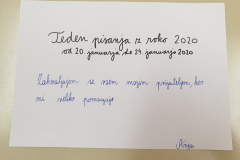 Teden pisanja z roko 2020
od 20. januarja do 24. januarja 2020
Zahvaljujem se vsem mojim prijateljem, ker
mi veliko pomagajo.